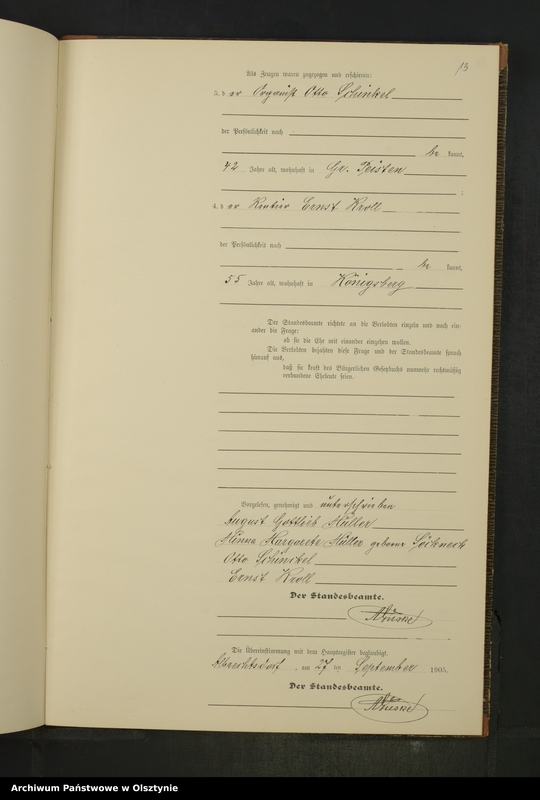 13
Als Zeugen waren zugezogen und erschienen:
3. der Organist Otto Schinkel
der Persönlichkeit nach
be kannt,
42 Jahre alt, wohnhaft in Gr. Peisten
;
4. der Rentier Ernst Kroll
der Persönlichkeit nach
be kannt,
55 Jahre alt, wohnhaft in Königsberg
Der Standesbeamte richtete an die Verlobten einzeln und nach ein-
ander die Frage:
ob sie die Ehe mit einander eingehen wollen.
Die Verlobten bejahten diese Frage und der Standesbeamte sprach
hierauf aus,
daß sie kraft des Bürgerlichen Gesetzbuchs nunmehr rechtmäßig
verbundene Eheleute seien.
Vorgelesen, genehmigt und unterschrieben
August Gottlieb Müller
Minna Margarete Müller geborene
Otto Schinkel
Ernst Kroll
Der Standesbeamte.
Die Übereinstimmung mit dem Hauptregister beglaubigt.
Albrechtsdorf, am 27 ten September 1905.
Der Standesbeamte.
Archiwum Państwowe w Olsztynie